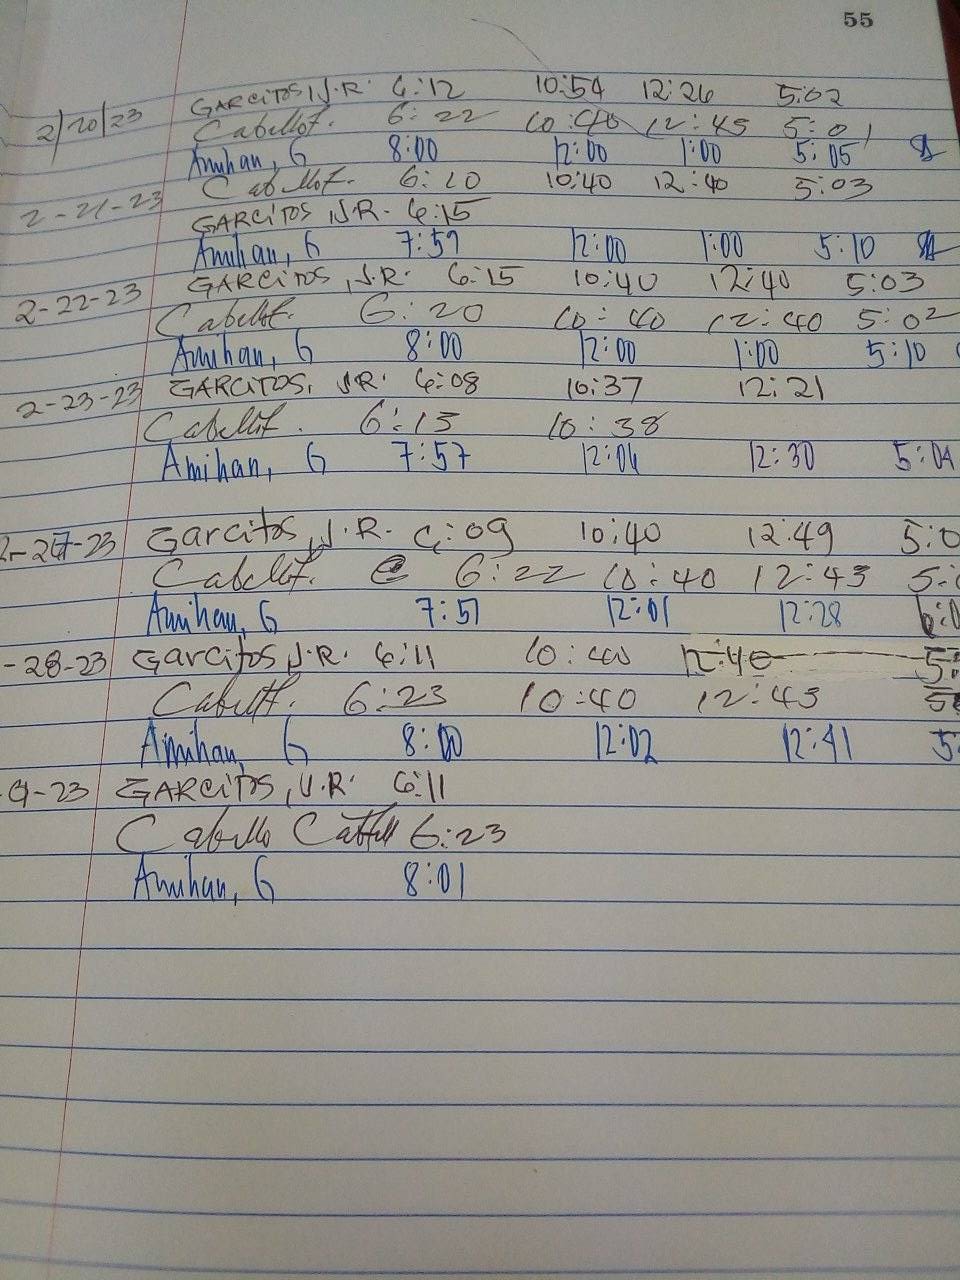 55
GARCITOS, J.R. 6:12 10:54 12:26 5:02
2/20/23 Cabellof. 6:22 10:40 12:45 5:01
Amihan, G 8:00 12:00 1:00 5:05
2-21-23 Cabellof. 6:20 10:40 12:40 5:03
GARCITOS, J.R. 6:15
Amihan, G 7:59 12:00 1:00 5:10
2-22-23 GARCITOS, J.R. 6:15 10:40 12:40 5:03
Cabellof. 6:20 10:40 12:40 5:02
Amihan, G 8:00 12:00 1:00 5:10
2-23-23 GARCITOS, J.R. 6:08 10:37 12:21
Cabellof. 6:13 10:38
Amihan, G 7:57 12:04 12:30 5:04
-23 Garcitos, J.R. 6:09 10:40 12:49 5:0
Cabellof. 6:22 10:40 12:43 5:
Amihan, G 7:51 12:01 12:28
-28-23 Garcitos J.R. 6:11 10:40 12:40 5:
Cabellof. 6:23 10:40 12:45 5
Amihan, G 8:00 12:02 12:41 5
-23 GARCITOS, J.R. 6:11
Cabello 6:23
Amihan, G 8:01